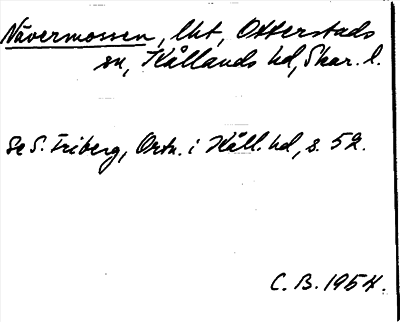 Nävermossen, lht, Otterstads
sn, Kållands hd, Skar. l.
Se S. Friberg, Ortn. i Kåll. hd, s. 52.
C. B. 1954.